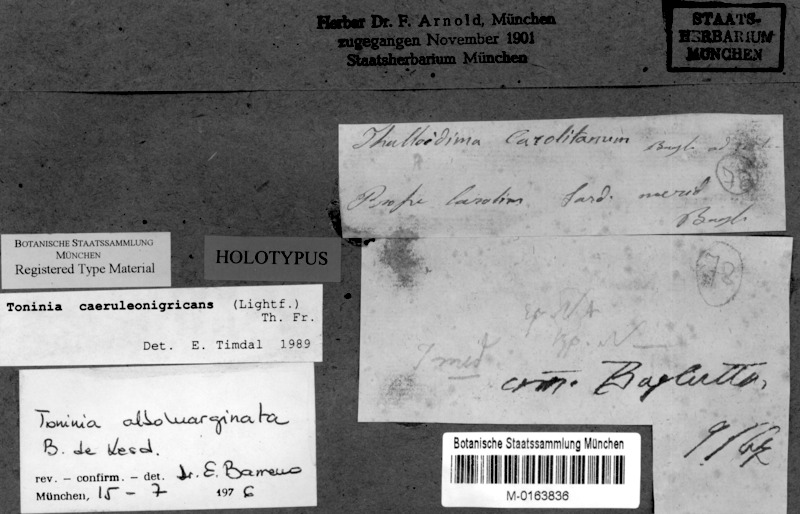 Herbar Dr. F. Arnold, München
zugegangen November 1901
Staatsherbarium München
STAATS-
HERBARIUM
MÜNCHEN
Thalloidima Carolitanum Bagl.
Prope Carolin Sard. merid
Bagl.
BOTANISCHE STAATSSAMMLUNG
MÜNCHEN
Registered Type Material
HOLOTYPUS
Toninia caeruleonigricans (Lightf.)
Th. Fr.
Det. E. Timdal 1989
com. Baglietto,
9/62
Toninia albomarginata
B. de Lesd.
rev. – confirm. – det. Dr. E. Barreno
München, 15 – 7 1976
Botanische Staatssammlung München
M-0163836